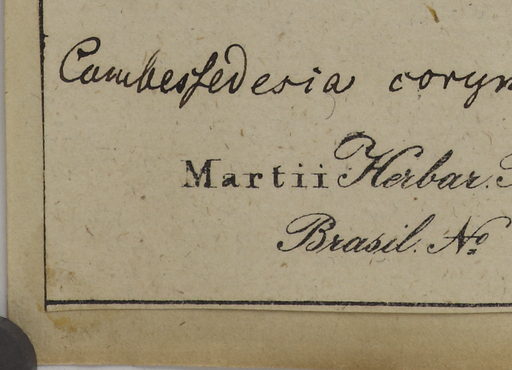 Cambessedesia corym
Martii Herbar.
Brasil. No